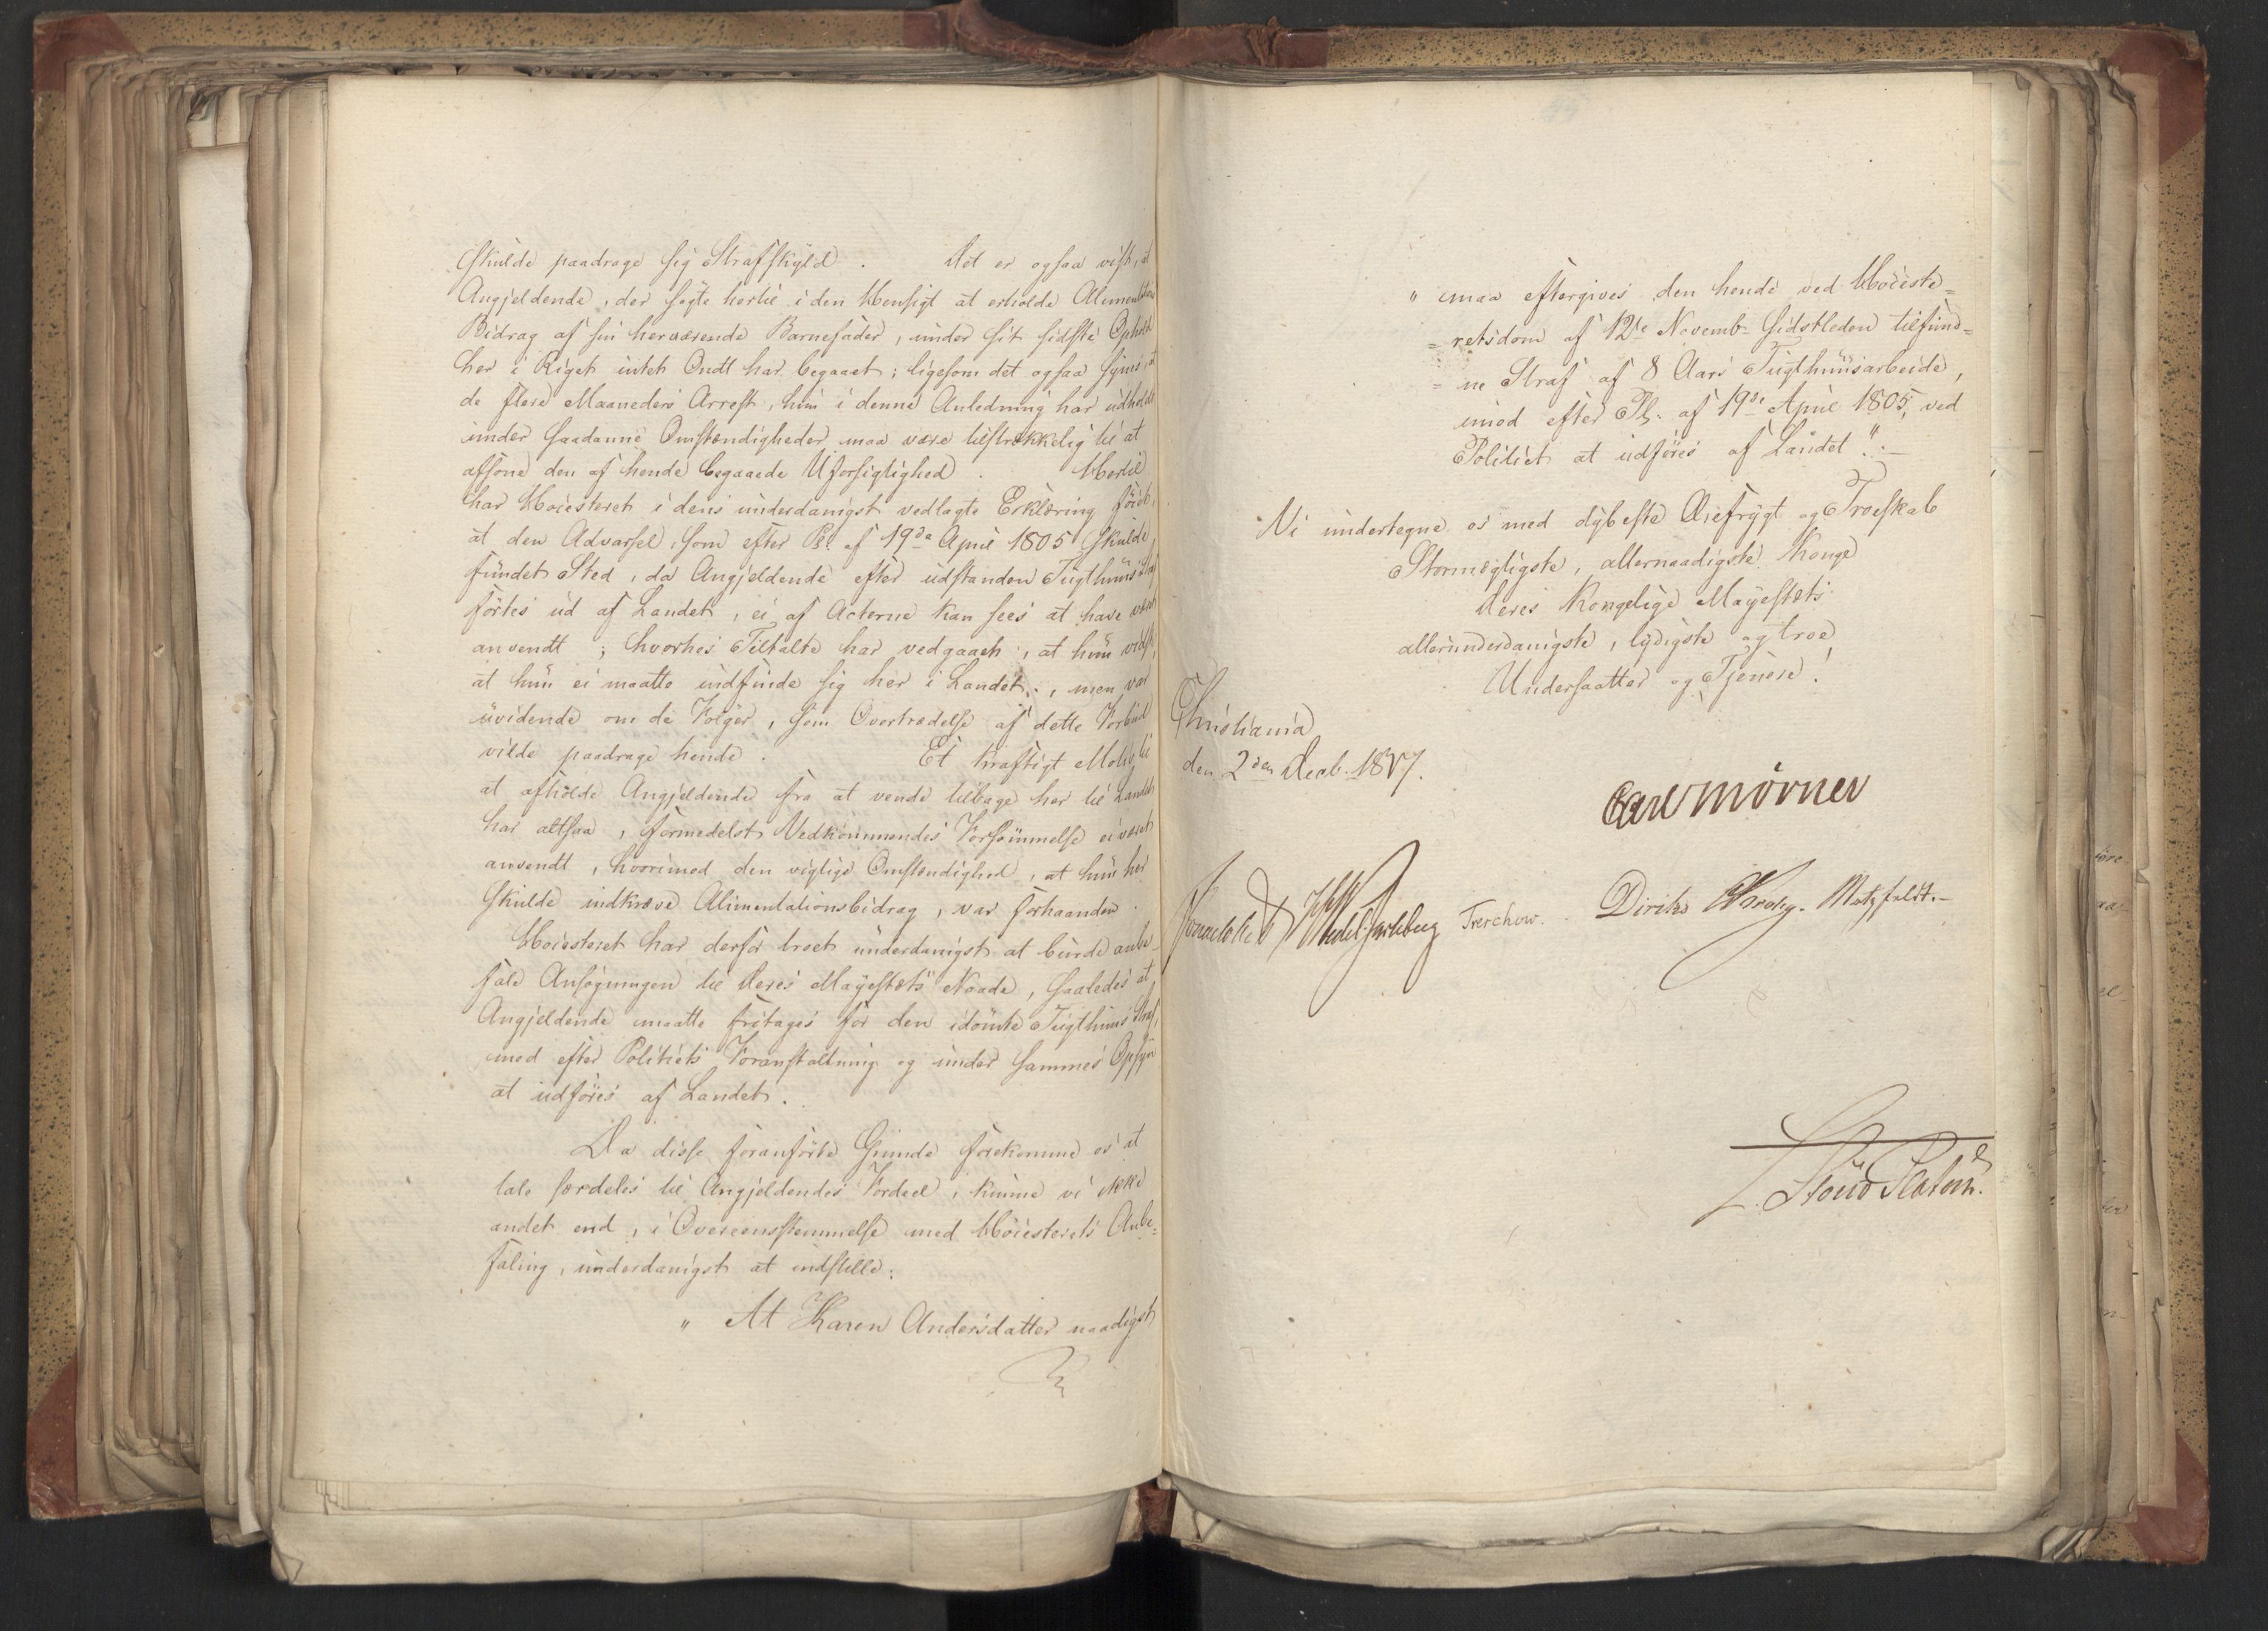 skulde paadrage sig Strafskyld. Det er ogsaa vist, at
Angjeldende, der søgte hertil i den Hensigt at erholde Alimentations
Bidrag af sin herværende Barnefader, under sit sidste Ophold
her i Riget intet Ondt har begaaet; ligesom det ogsaa synes, at
de flere Maaneders Arrest, hun i denne Anledning har udholdt
under saadanne Omstændigheder maa være tilstrækkelig til at
afsone den af hende begaaede Uforsigtighed. Hertil
har Høiesteret i dens underdanigst vedlagte Erklæring føiet,
at den Advarsel, som efter Pl. af 19de April 1805 skulde
fundet Sted, da Angjeldende efter udstanden Tugthuus Straf
førtes ud af Landet, ei af Acterne kan sees at have været
anvendt; hvorhos Tiltalte har vedgaaet, at hun vidste,
at hun ei maatte indfinde sig her i Landet, men var
uvidende om de Følger, som Overtrædelse af dette Forbud
vilde paadrage hende. Et kraftigt Motiv til
at afholde Angjeldende fra at vende tilbage her til Landet
har altsaa, formedelst Vedkommendes Forsømmelse ei været
anvendt, hvorimod den vigtige Omstændighed, at hun her
skulde indkræve Alimentationsbidrag, var forhaanden.
Høiesteret har derfor troet underdanigst at burde anbe-
fale Ansøgningen til Deres Majestæts Naade, saaledes at
Angjeldende maatte fritages for den idømte Tugthuus Straf,
mod efter Politiets Foranstaltning og under sammes Opsyn
at udføres af Landet.
Da disse foranførte Grunde forekomme os at
tale særdeles til Angjeldendes Fordeel, kunne vi ikke
andet end, i Overeensstemmelse med Høiesterets Anbe=
faling, underdanigst at indstille:
" At Karen Andersdatter naadigst
" maa eftergives den hende ved Høieste=
= retsdom af 12te Novemb. sidstleden tilfund=
= ne Straf af 8 Aars Tugthuusarbeide,
imod efter Pl. af 19de April 1805, ved
Politiet at udføres af Landet ".
Vi undertegne os med dybeste Ærefrygt og Troeskab
Stormægtigste, allernaadigste Konge
Deres Kongelige Majestæts
allerunderdanigste, lydigste og troe
Undersaatter og Tjenere!
Christiania
den 2den Decb. 1817.
Carl Mörner
Sommerhielm Wedel Jarlsberg Treschow. Diriks Krohg. Motzfeldt.
L. Stoud Platou.